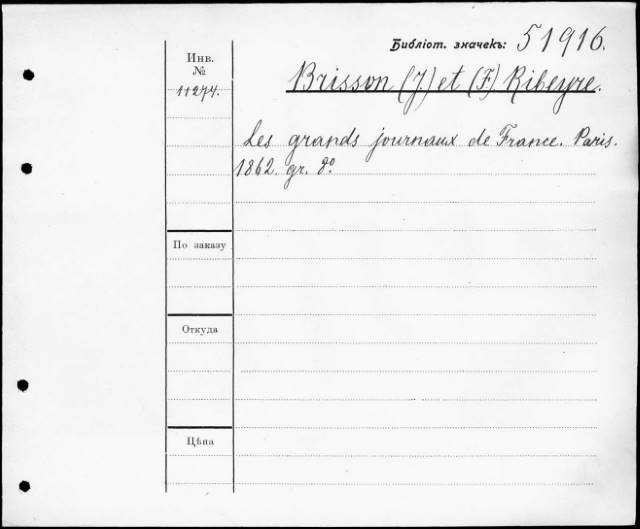 Библіот. значекъ: 51916.
Инв.
№
11274.
Brisson (J.) et (F.) Ribeyre.
Les grands journaux de France. Paris.
1862. gr. 8º
По заказу
Откуда
Цѣна